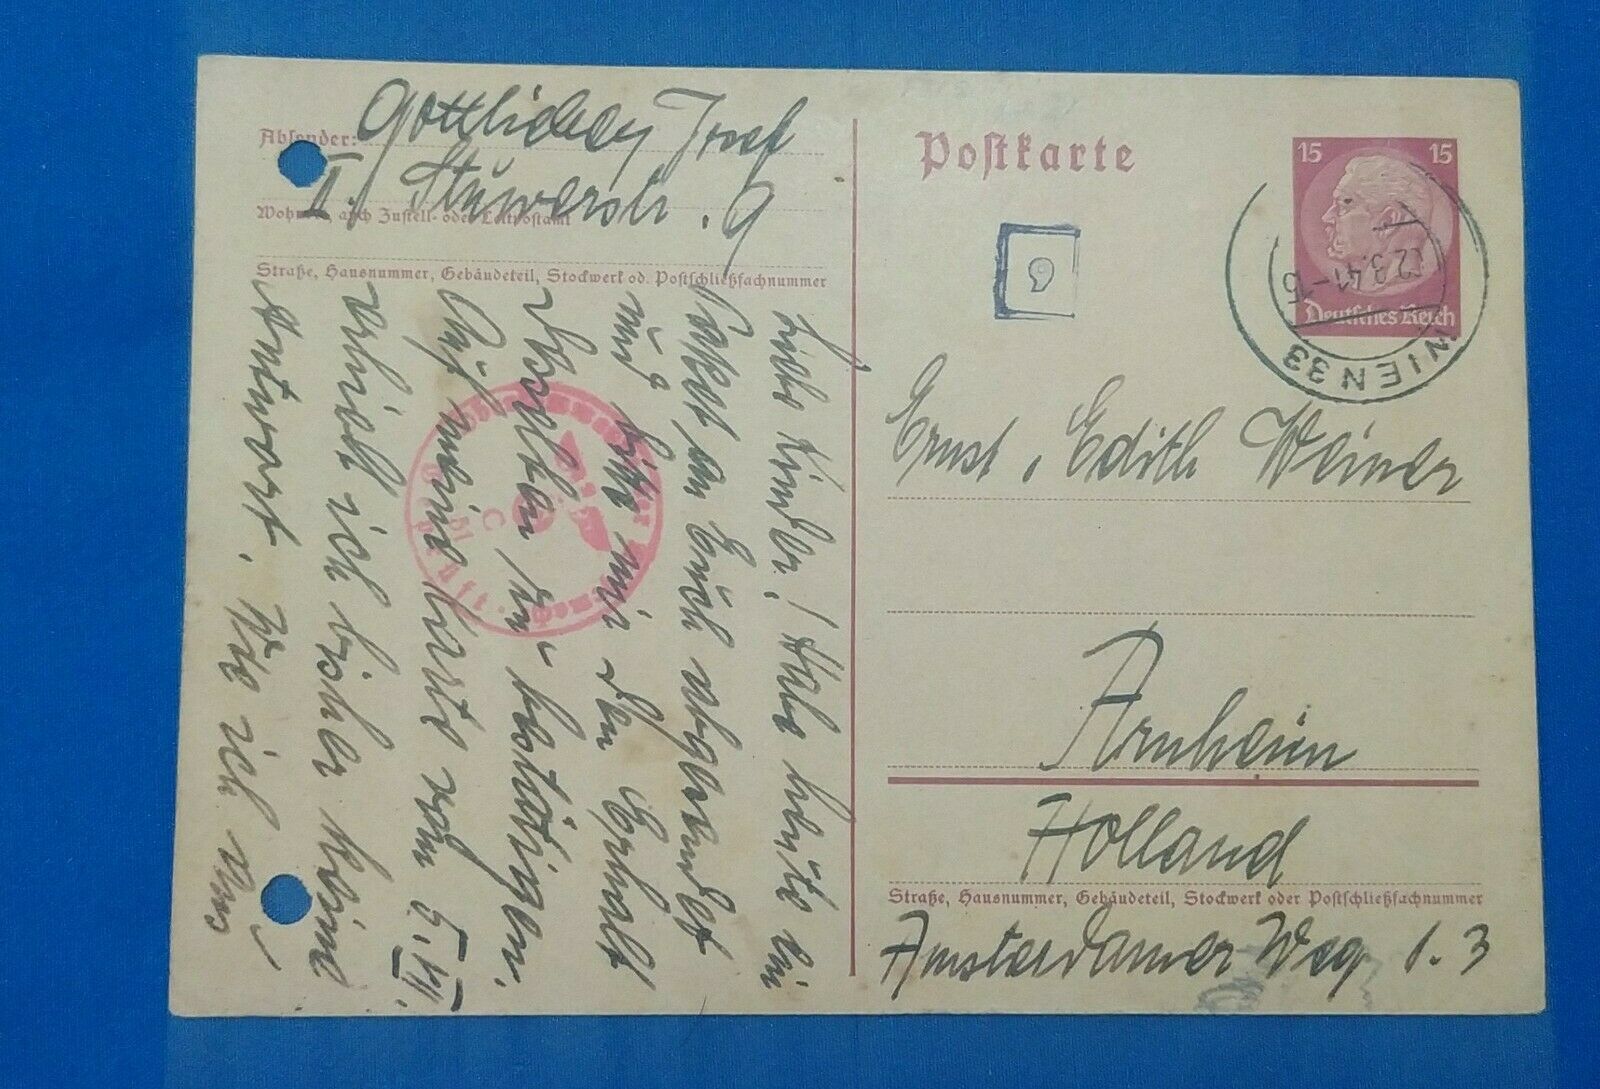 Absender: Gottlieb Josef
II. Stuwerstr. 9
Wohnort, auch Zustell- oder Leitpostamt
Straße, Hausnummer, Gebäudeteil, Stockwerk od. Postschließfachnummer
Liebe Kinder! Habe heute ein
Paket an Euch abgesendet
und bitte mir den Erhalt
desselben zu bestätigen.
Auf meine Karte vom
erhielt ich bisher keine
Antwort. Wie ich
Postkarte
15 15
Deutsches Reich
WIEN 33
12.3.41-15
9
Ernst, Edith Weiner
Arnheim
Holland
Straße, Hausnummer, Gebäudeteil, Stockwerk oder Postschließfachnummer
Amsterdamer Weg 1. 3